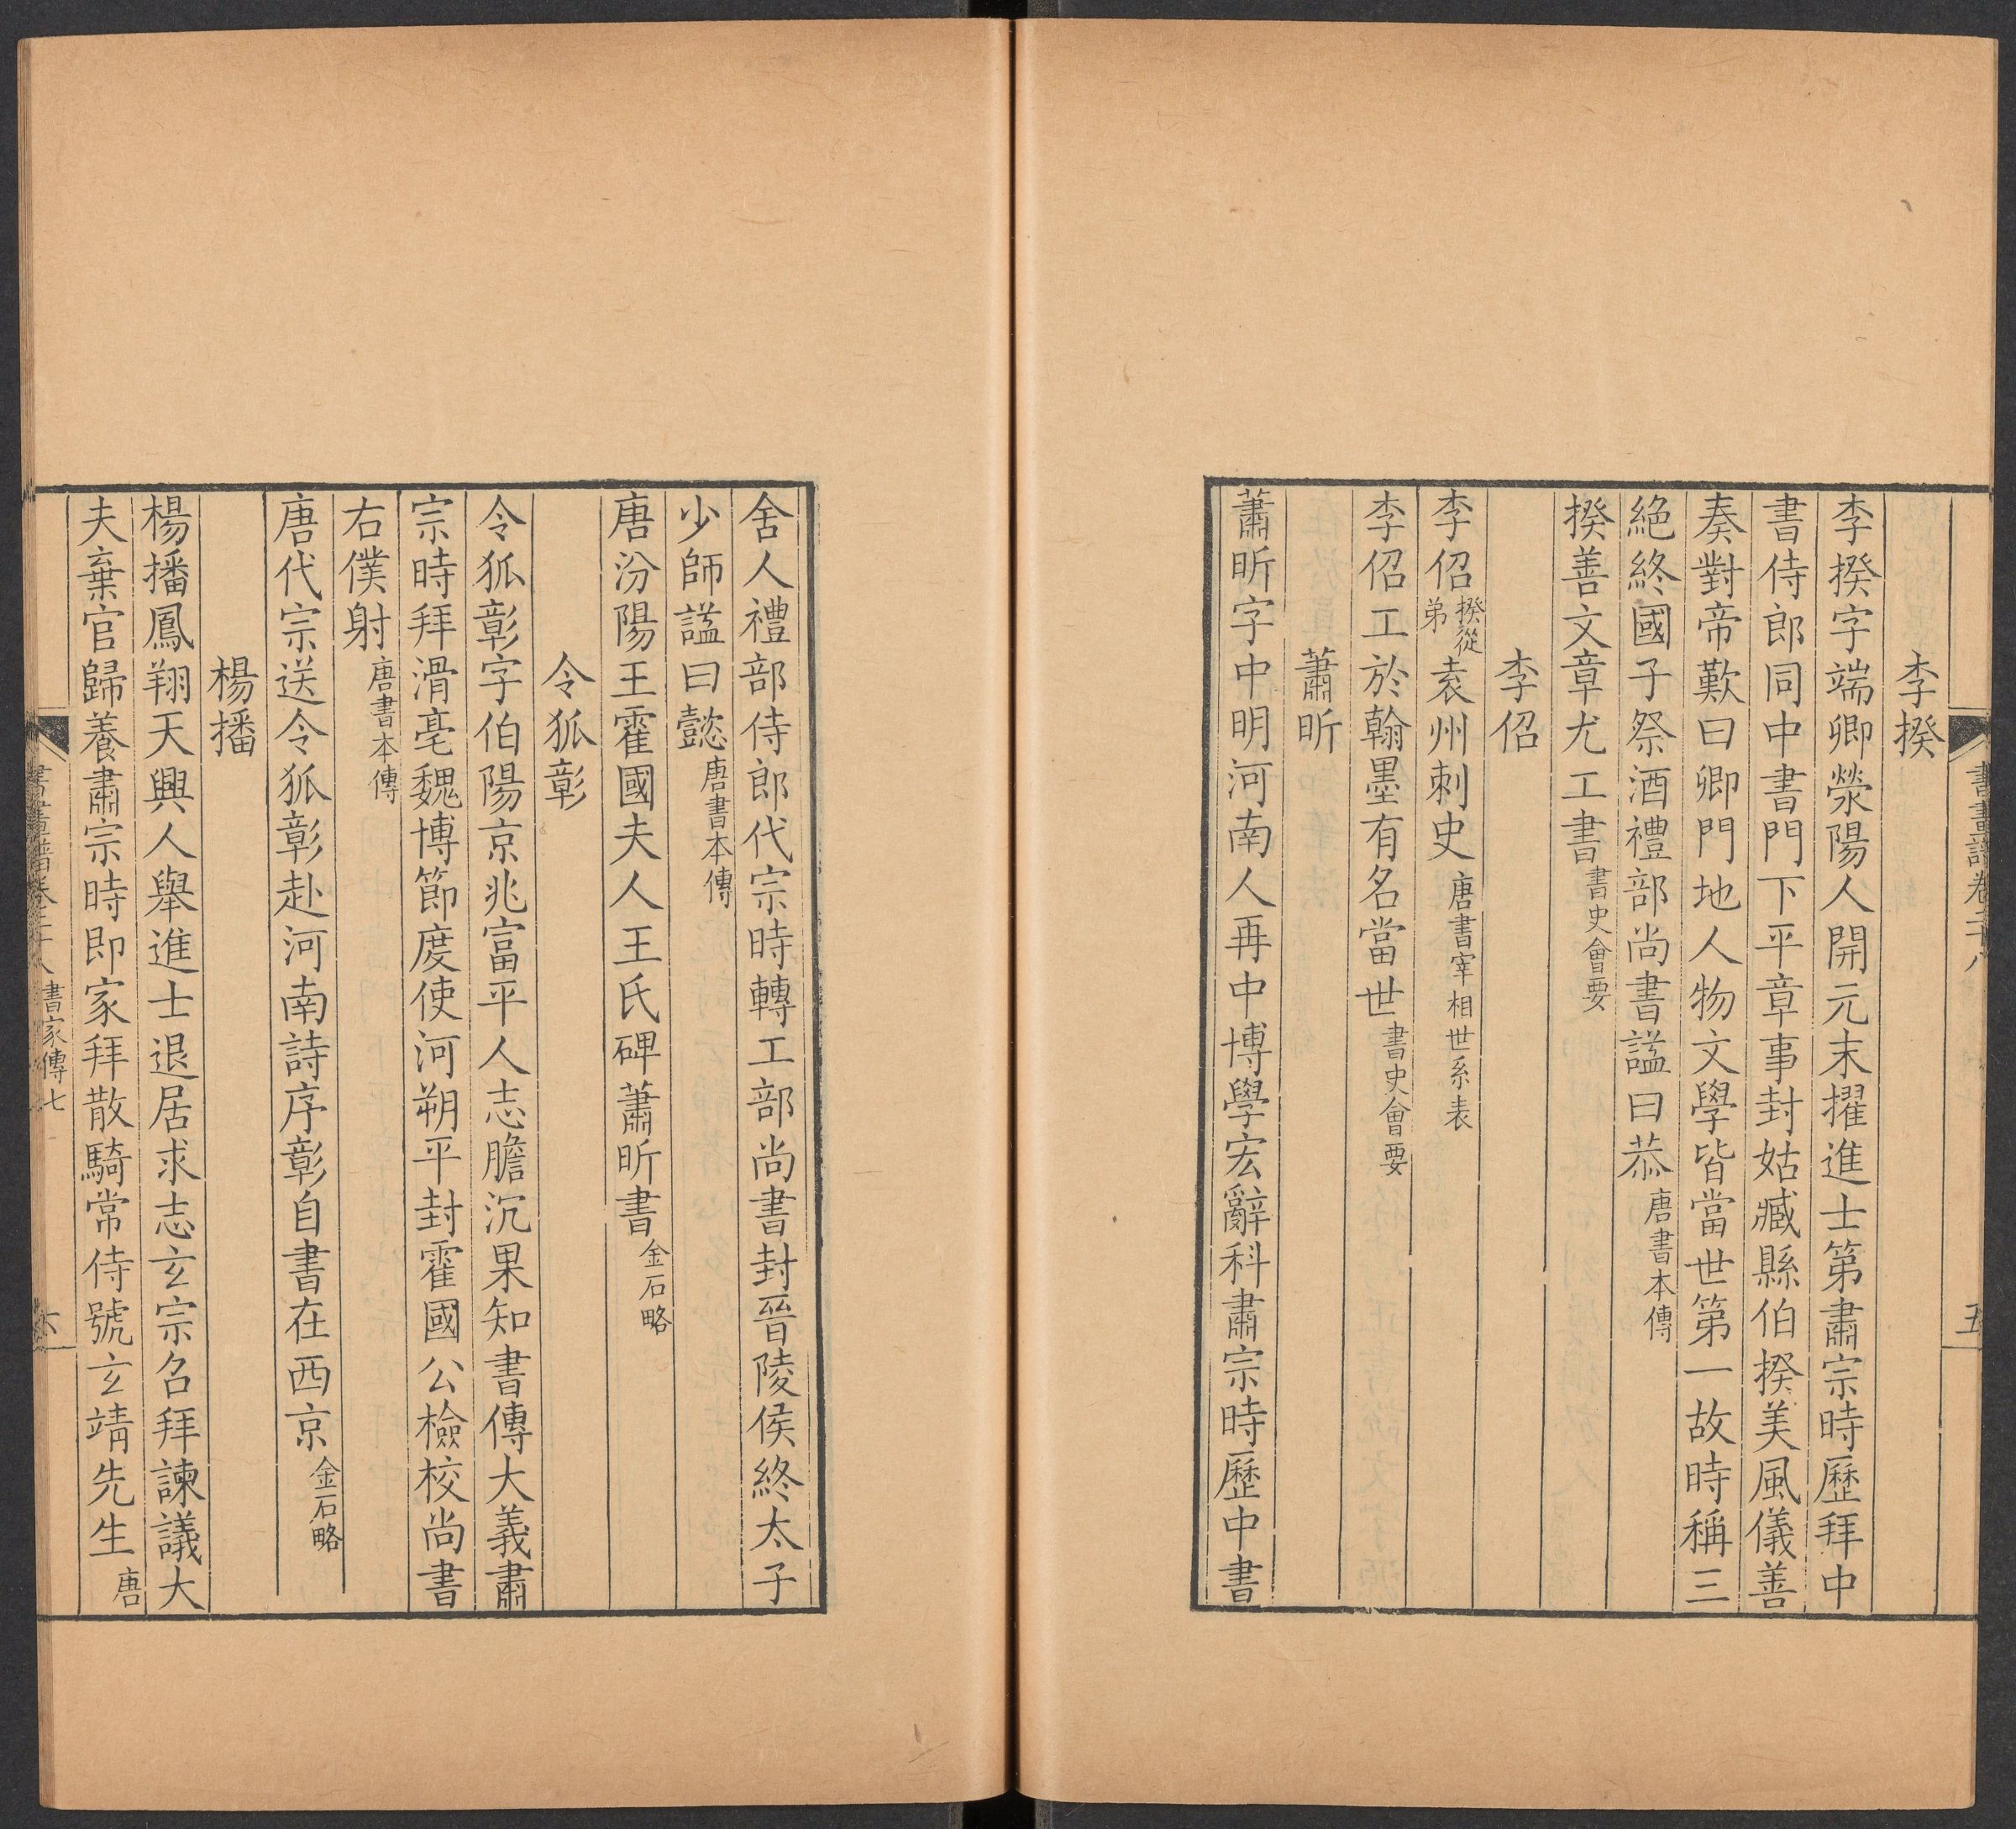 書畫譜卷二十八
五
李揆
李揆字端卿滎陽人開元末擢進士第肅宗時歷拜中
書侍郎同中書門下平章事封姑臧縣伯揆美風儀善
奏對帝歎曰卿門地人物文學皆當世第一故時稱三
絕終國子祭酒禮部尚書諡曰恭唐書本傳
揆善文章尤工書書史會要
李佋
李佋揆從弟袁州刺史唐書宰相世系表
李佋工於翰墨有名當世書史會要
蕭昕
蕭昕字中明河南人再中博學宏辭科肅宗時歷中書
舍人禮部侍郎代宗時轉工部尚書封晉陵侯終太子
少師諡曰懿唐書本傳
唐汾陽王霍國夫人王氏碑蕭昕書金石略
令狐彰
令狐彰字伯陽京兆富平人志膽沉果知書傳大義肅
宗時拜滑亳魏博節度使河朔平封霍國公檢校尚書
右僕射唐書本傳
唐代宗送令狐彰赴河南詩序彰自書在西京金石略
楊播
楊播鳳翔天興人舉進士退居求志玄宗召拜諫議大
夫棄官歸養肅宗時即家拜散騎常侍號玄靖先生唐
書畫譜卷二十八 書家傳七
六